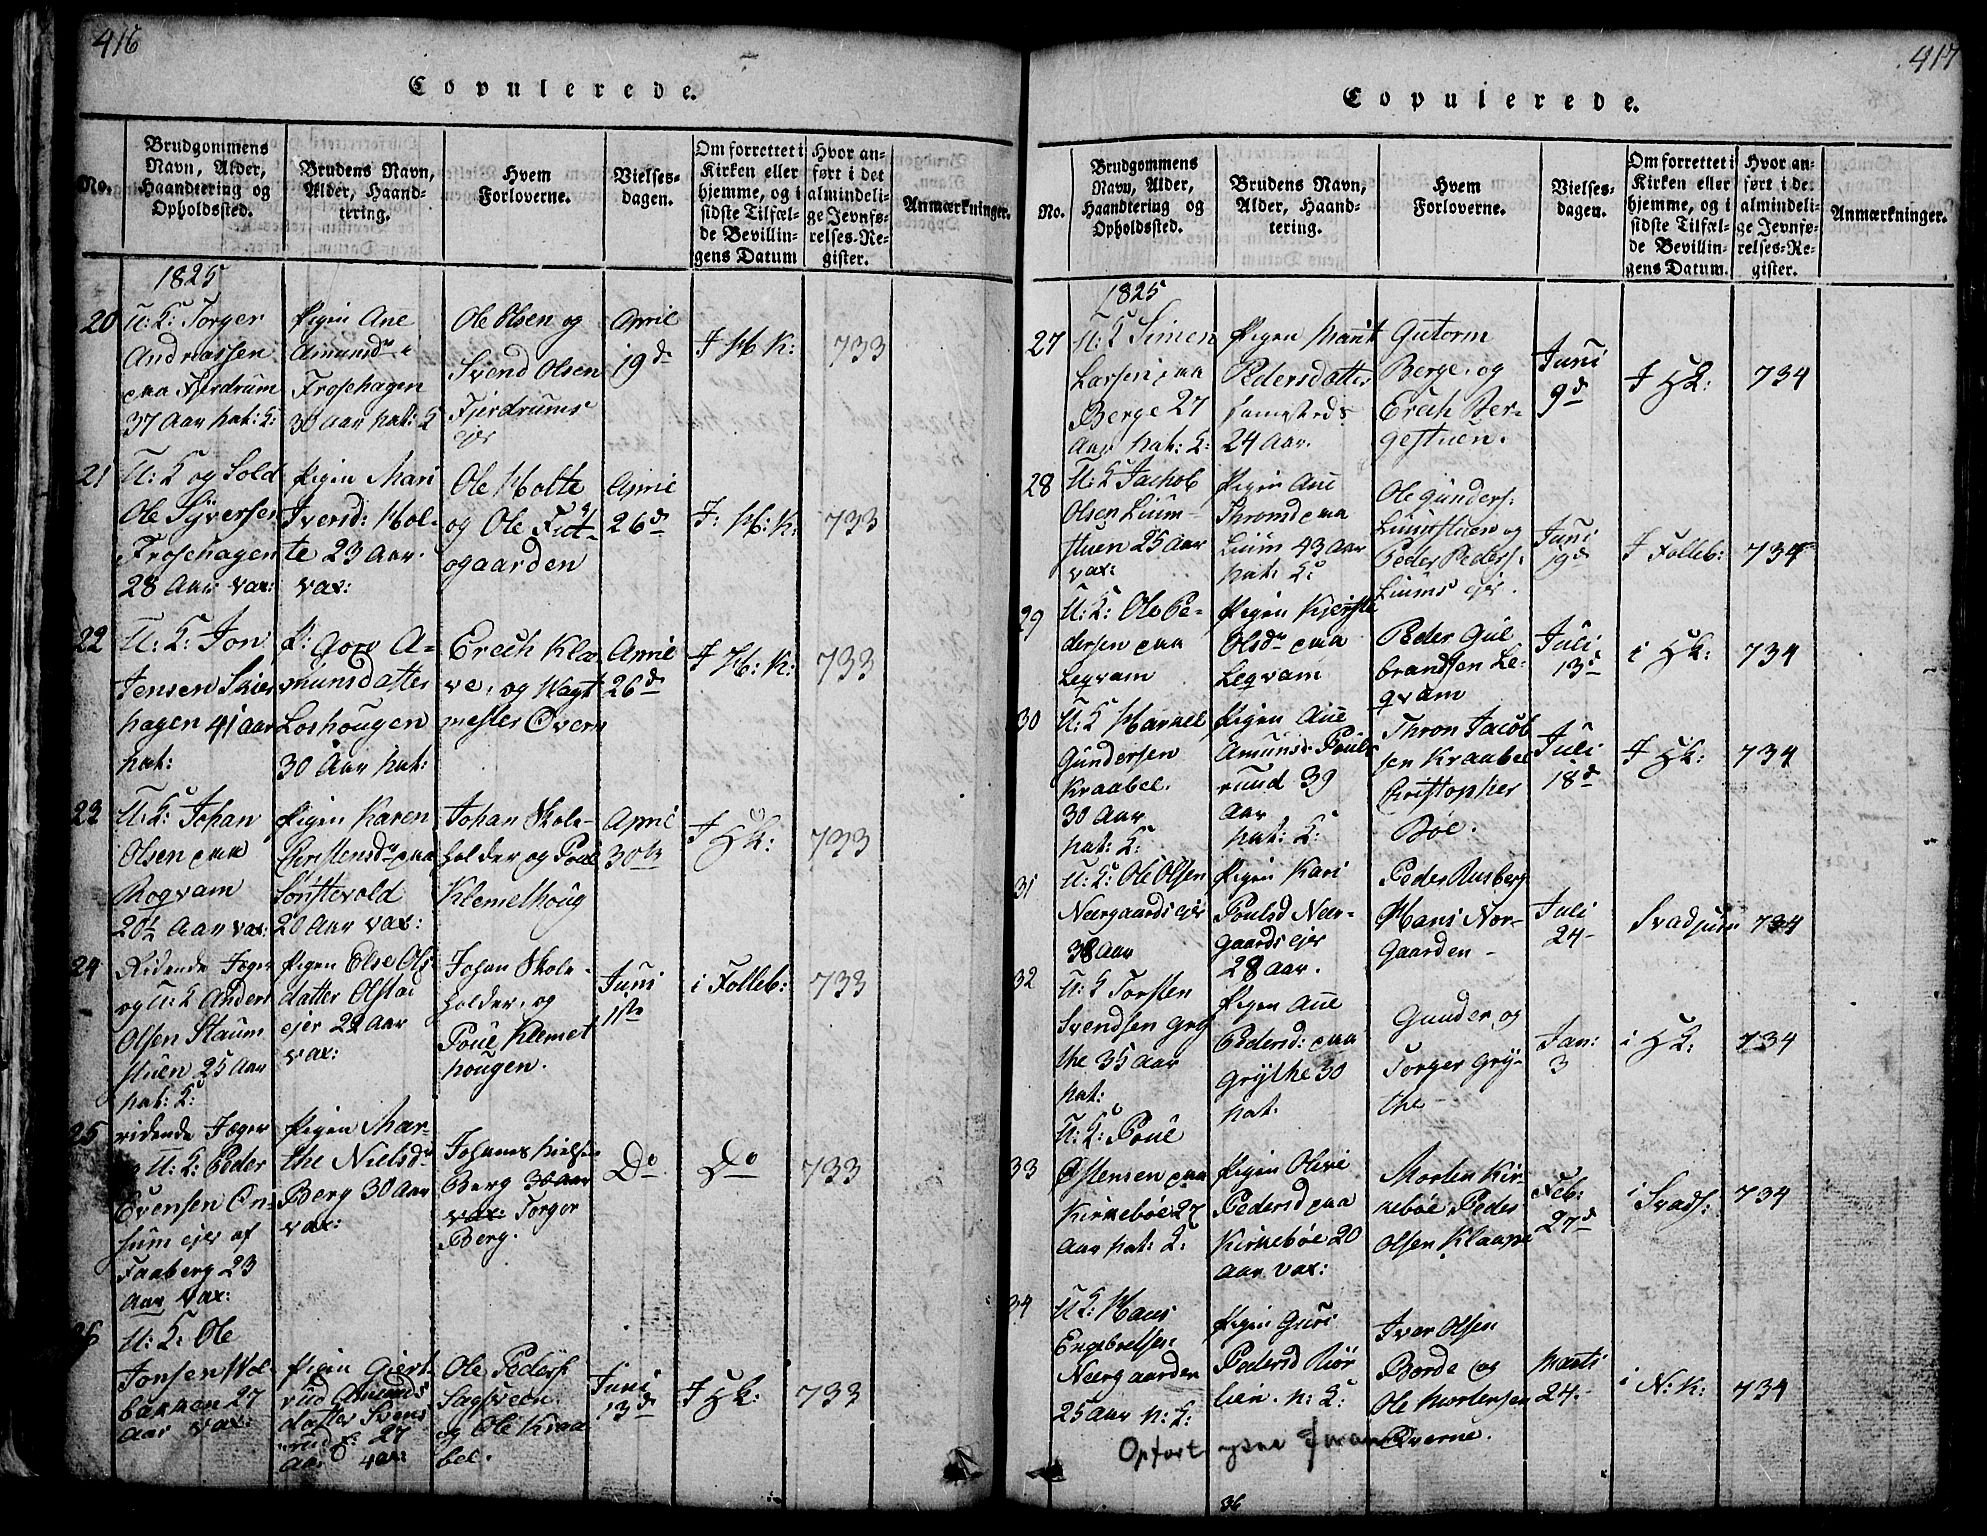 416
Copulerede.
No.
Brudgommens
Navn, Alder,
Haandtering og
Opholdssted.
Brudens Navn,
Alder, Haand-
tering.
Hvem
Forloverne.
Vielses-
dagen.
Om forrettet i
Kirken eller
hjemme, og i
sidste Tilfæl-
de Bevillin-
gens Datum
Hvor an-
ført i det
almindeli-
ge Jevnfø-
relses-Re-
gister.
Anmærkninger.
1825
20
U: K: Torger
Andreassen
paa Fjerdrum
37 Aar hat: K:
Pigen Ane
Amunsdr i
Frosehagen
30 Aar hat: K
Ole Olsen og
Svend Olsen
Fjerdrums
ejer
April
19de
I H. K:
733
21
U: K og Sold
Ole Syversen
Frosehagen
28 Aar vax:
Pigen Mari
Iversd: Hol-
te 23 Aar.
vax:
Ole Holte
og Ole
ogaarden
April
26de
I: H: K:
733
22
U: K: Jon
Jensen Skier
hagen 41 aar
hat:
P: Gore A-
munsdatter
Loshougen
30 Aar hat:
Erich Klæ
ve, og Wagt
mester Overn
April
26de
I H: K:
733
23
U: K: Johan
Olsen paa
Rogvam
20½ Aar vax:
Pigen Karen
Christensdr paa
Sørstevold
20 Aar vax:
Johan Skole-
holder og Poul
Klemethoug
April
30te
I HK:
733
24
Ridende Jæger
og U: K Anders
Olsen Staum
stuen 25 Aar
hat: K:
Pigen Else Ols
datter Olstad
ejer 22 Aar
vax:
Johan Skole-
holder, og
Poul Klemet
hougen.
Juni
1ste
i Folleb:
733
25
ridende Jæger
og U: K: Peder
Evensen En-
sum ejer af
Faaberg 23
Aar vax:
Pigen Mar-
the Nielsdr
Berg 30 Aar
vax:
Johannes Niels-
Berg 30 Aar
vax: Torger
Berg.
Do
Do
733
26
U: K: Ole
Jonsen Hol-
bakken 27
Aar vax:
Pigen Giert
rud Amunds
datter Svens
rud E: 27
Aar vax:
Ole Peders:
Sagsveen
og Ole Kraa
bøl.
Juni
13de
I HK:
733
417
Copulerede.
No.
Brudgommens
Navn, Alder,
Haandtering og
Opholdssted.
Brudens Navn,
Alder, Haand-
tering.
Hvem
Forloverne.
Vielses-
dagen.
Om forrettet i
Kirken eller
hjemme, og i
sidste Tilfæl-
de Bevillin-
gens Datum.
Hvor an-
ført i det
almindeli-
ge Jevnfø-
relses-Re-
gister.
Anmærkninger.
1825
27
U: K Simen
Larsen paa
Berge 27
Aar hat: K:
Pigen Marit
Pedersdatter
samesteds
24 Aar.
Gutorm
Berge, og
Erich Ber-
gestuen.
Juni
9de
I HK:
734
28
U: K Jachob
Olsen Lium-
stuen 25 Aar
vax:
Pigen Ane
Thronsd paa
Lium 43 Aar
hat: K:
Ole Gunders:
Liumstuen og
Peder Peders:
Liums ejer.
Juni
19de
I Folleb:
734
29
U: K: Ole Pe-
dersen paa
Leqvam
Pigen Kjerste
Olsdr paa
Leqvam
Peder Gul
brandsen Le-
qvam
Juli
13de
i HK:
734
30
U: K Harkel
Gundersen
Kraabøl.
30 Aar
hat: K:
Pigen Ane
Amunsd: Pouls
ruud 39
Aar
hat: K:
Thron Jacob
sen Kraabøl
Christopher
Bøe.
Juli
18de
I HK:
734
31
U: K: Ole Olsen
Neergaards ejer
38 Aar
Pigen Kari
Poulsd Neer-
gaards ejer
28 Aar.
Peder Rusberg
Hans Nor-
gaarden -
Juli
24-
Svadsum
734
32
U: K Torsten
Svendsen Gry
the 35 Aar
hat:
Pigen Ane
Pedersd: paa
Grythe 30
hat.
Gunder og
Torger Gry-
the -
Jan:
3
i HK:
734
33
U: K: Poul
Østensen paa
Kirkebøe 27
Aar hat: K:
Pigen Olive
Pedersd paa
Kirkebøe 20
Aar vax:
Morten Kir-
kebøe Peder
Olsen Klaape
Feb:
27de
i Svads:
734
34
U: K: Hans
Engebretsen
Neergaarden
25 Aar n: K:
Pigen Guri
Pedersd Rør
lien. n: K:
Iver Olsen
Borde og
Ole Mortensen
Qverne.
Marti
24.-
i N: K:
734
Opført
36